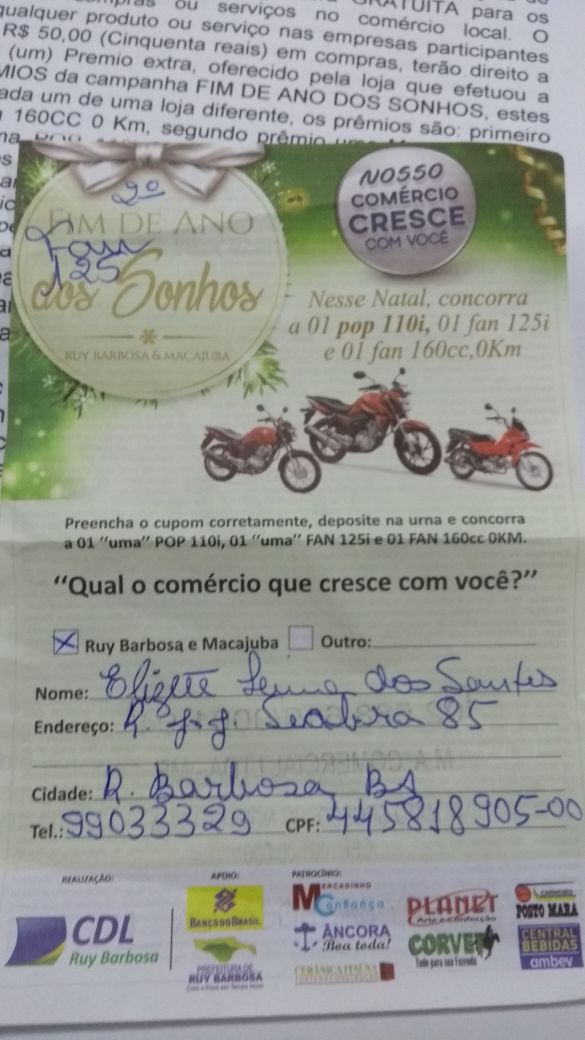 GRATUITA para os
ou serviços no comércio local. O
qualquer produto ou serviço nas empresas participantes
R$ 50,00 (Cinquenta reais) em compras, terão direito a
(um) Premio extra, oferecido pela loja que efetuou a
MIOS da campanha FIM DE ANO DOS SONHOS, estes
ada um de uma loja diferente, os prêmios são: primeiro
160CC 0 Km, segundo prêmio
2º
FIM DE ANO
Fan
125
dos Sonhos
RUY BARBOSA & MACAJUBA
NOSSO
COMÉRCIO
CRESCE
COM VOCÊ
Nesse Natal, concorra
a 01 pop 110i, 01 fan 125i
e 01 fan 160cc,0Km
Preencha o cupom corretamente, deposite na urna e concorra
a 01 "uma" POP 110i, 01 "uma" FAN 125i e 01 FAN 160cc 0KM.
"Qual o comércio que cresce com você?"
X Ruy Barbosa e Macajuba Outro:
Nome: Elizete Senna dos Santos
Endereço: R. J.J. Seabra 85
Cidade: R. Barbosa BA
Tel.: 99033329 CPF: 445818905-00
REALIZAÇÃO:
CDL
Ruy Barbosa
APOIO:
BANCO DO BRASIL
PREFEITURA DE
RUY BARBOSA
PATROCÍNIO:
MERCADINHO
Confiança
ÂNCORA
Boa toda!
CERÂMICA ITAÚNA
PLANET
Arte e Confecção
CORVET
Tudo para sua Fazenda
CARNEIRO
POSTO MARA
CENTRAL
BEBIDAS
ambev